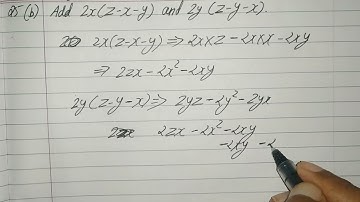 (b) Add 2x(z-x-y) and 2y (z-y-x).
2x(z-x-y) ⇒ 2x×z - 2x×x - 2xy
⇒ 2zx - 2x² - 2xy
2y(z-y-x) ⇒ 2yz - 2y² - 2yx
2zx - 2x² - 2xy
- 2xy - 2